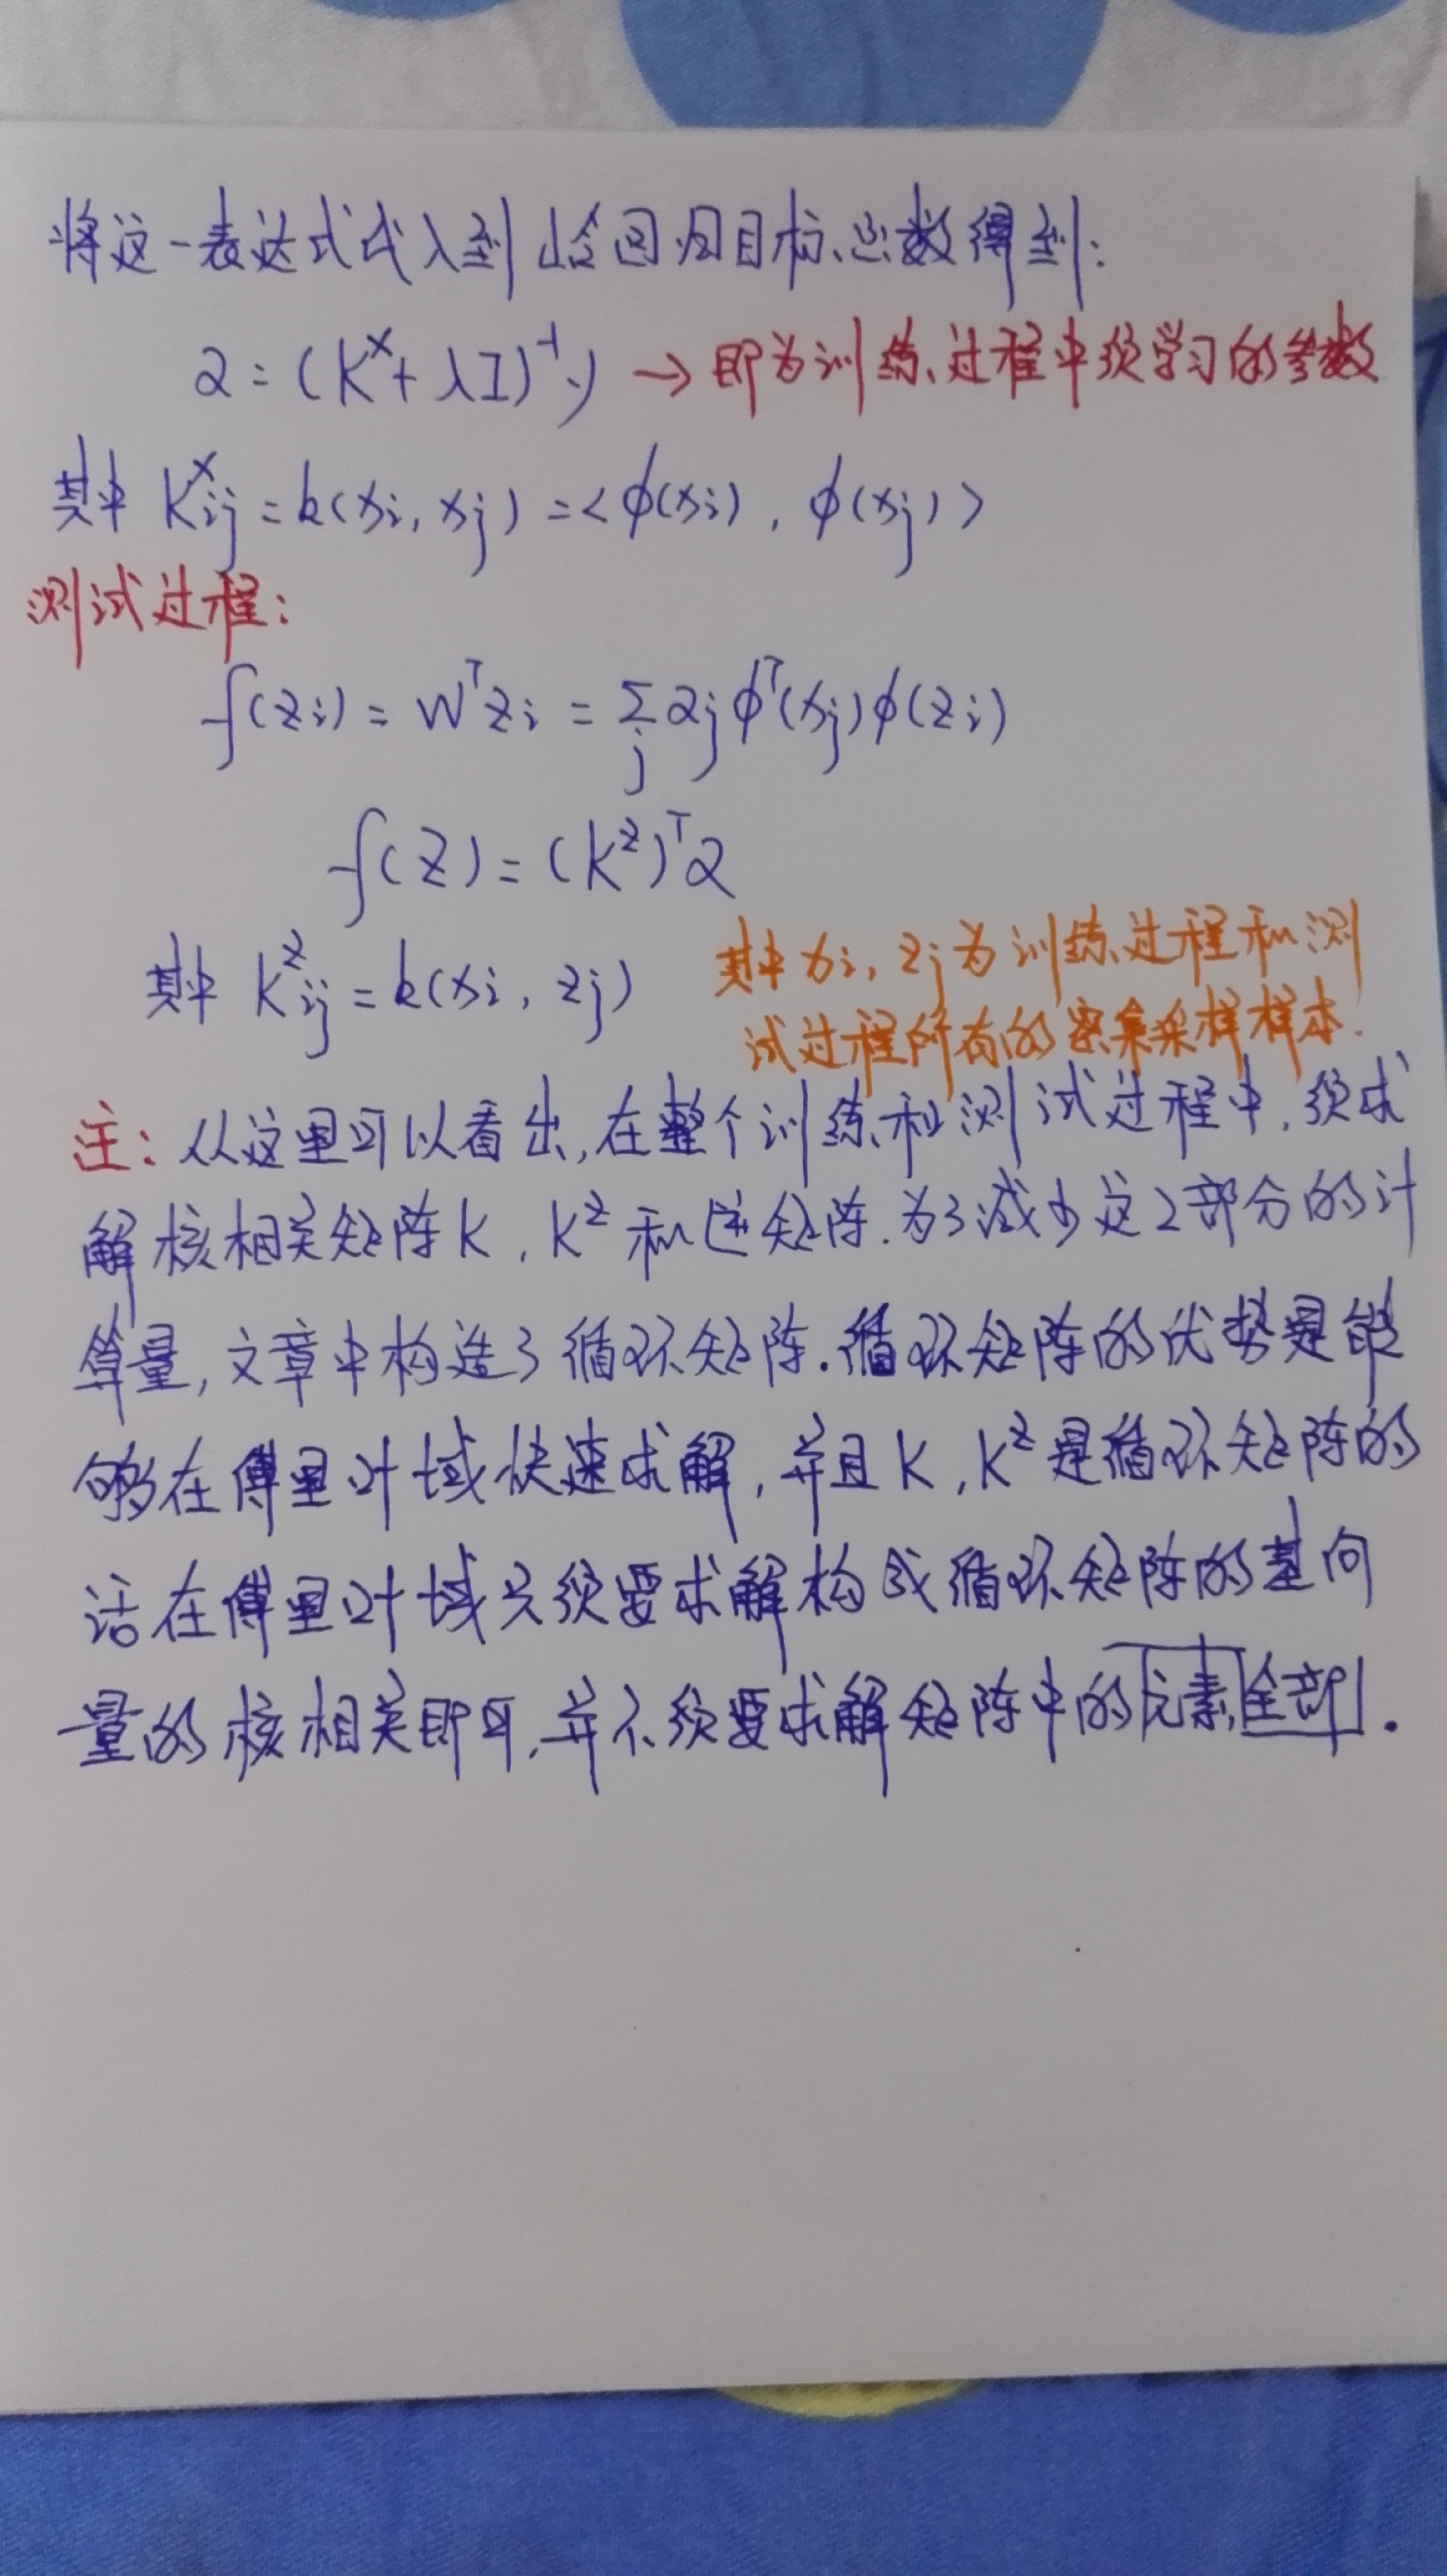 将这一表达式代入到岭回归目标函数得到:
α = (K^x + λI)^{-1} y → 即为训练过程中须学习的参数
其中 K^x_{ij} = k(x_i, x_j) = <φ(x_i), φ(x_j)>
测试过程:
f(z_i) = w^T z_i = Σ_j α_j φ^T(x_j) φ(z_i)
f(Z) = (K^z)^T α
其中 K^z_{ij} = k(x_i, z_j)
其中 x_i, z_j 为训练过程和测
试过程所有的密集采样样本.
注: 从这里可以看出, 在整个训练和测试过程中, 须求
解核相关矩阵K, K^z 和逆矩阵. 为了减少这2部分的计
算量, 文章中构造了循环矩阵. 循环矩阵的优势是能
够在傅里叶域快速求解, 并且K, K^z 是循环矩阵的
话在傅里叶域只须要求解构成循环矩阵的基向
量的核相关即可, 并不须要求解矩阵中的元素全部.